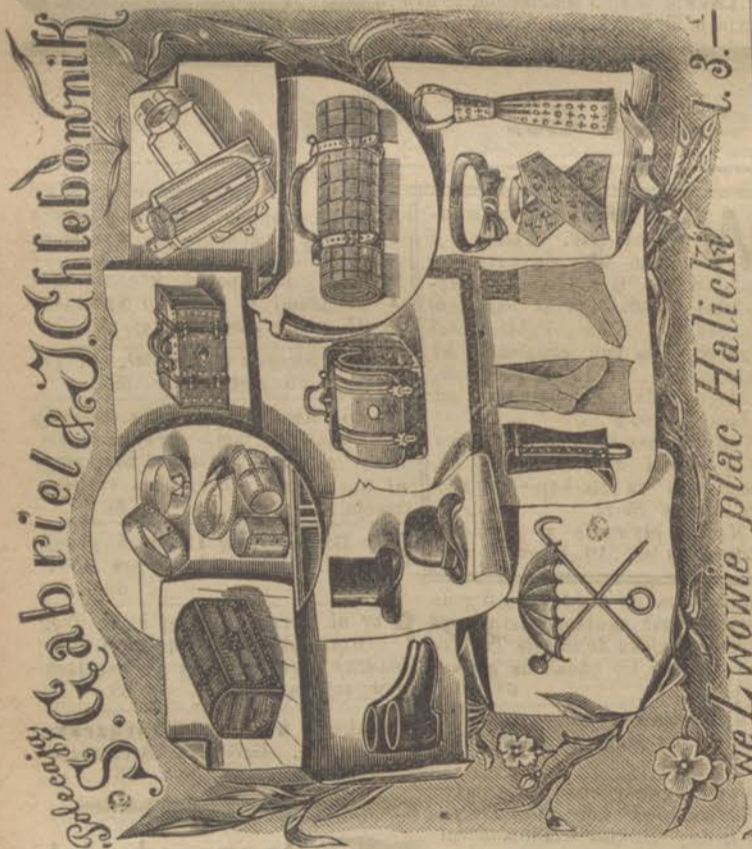 Polecają
S. Gabriel & J. Chlebownik
we Lwowie plac Halicki l. 3.—